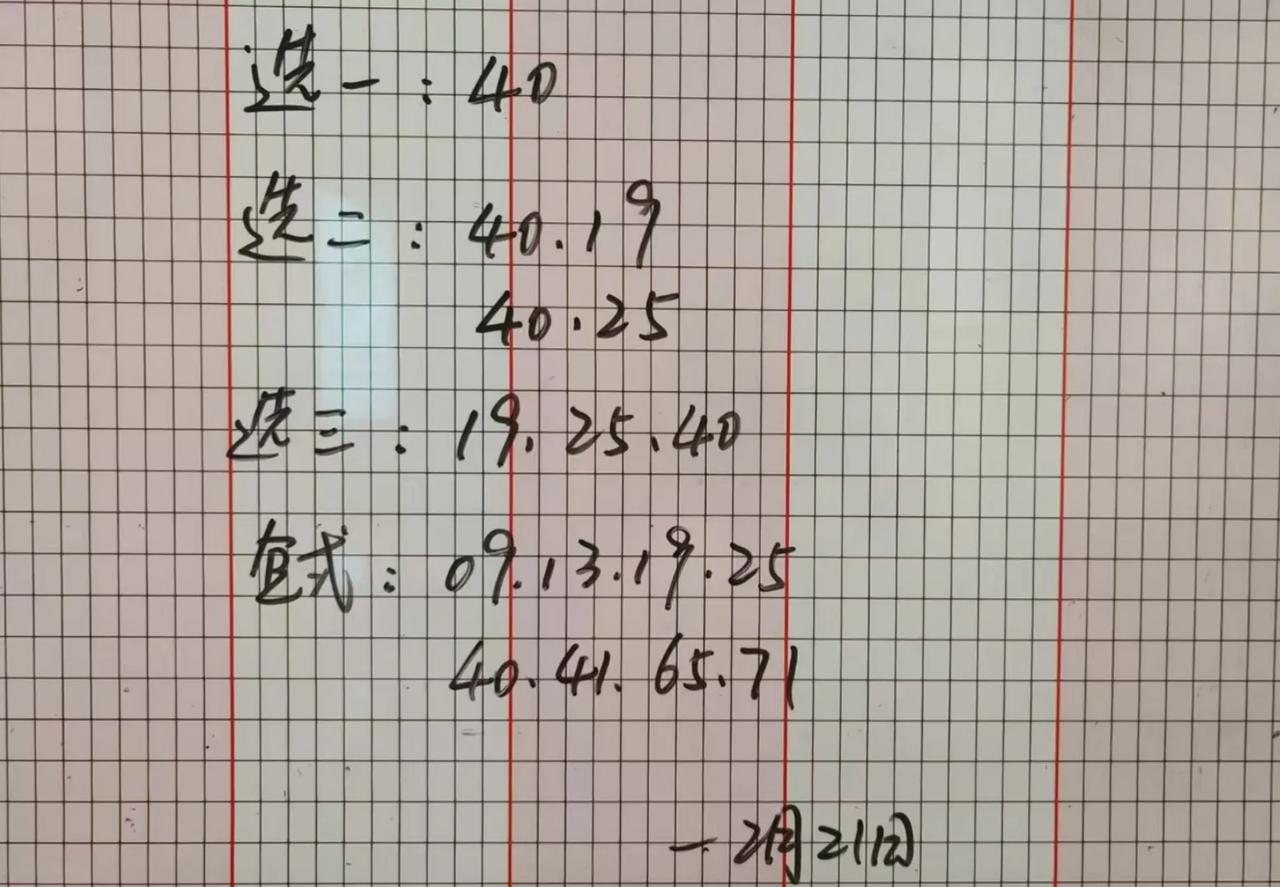 选一：40
选二：40.19
40.25
选三：19.25.40
直式：09.13.19.25
40.41.65.71